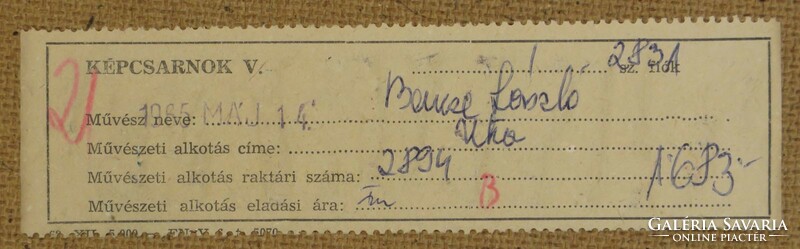 21
KÉPCSARNOK V. .......... 2831 sz. fiók
1985 MÁJ 14.
Művész neve: Bencze László
Művészeti alkotás címe: Utca
Művészeti alkotás raktári száma: 2894
Művészeti alkotás eladási ára: B 1683.-
GALÉRIA SAVARIA
ONLINE PIACTÉR